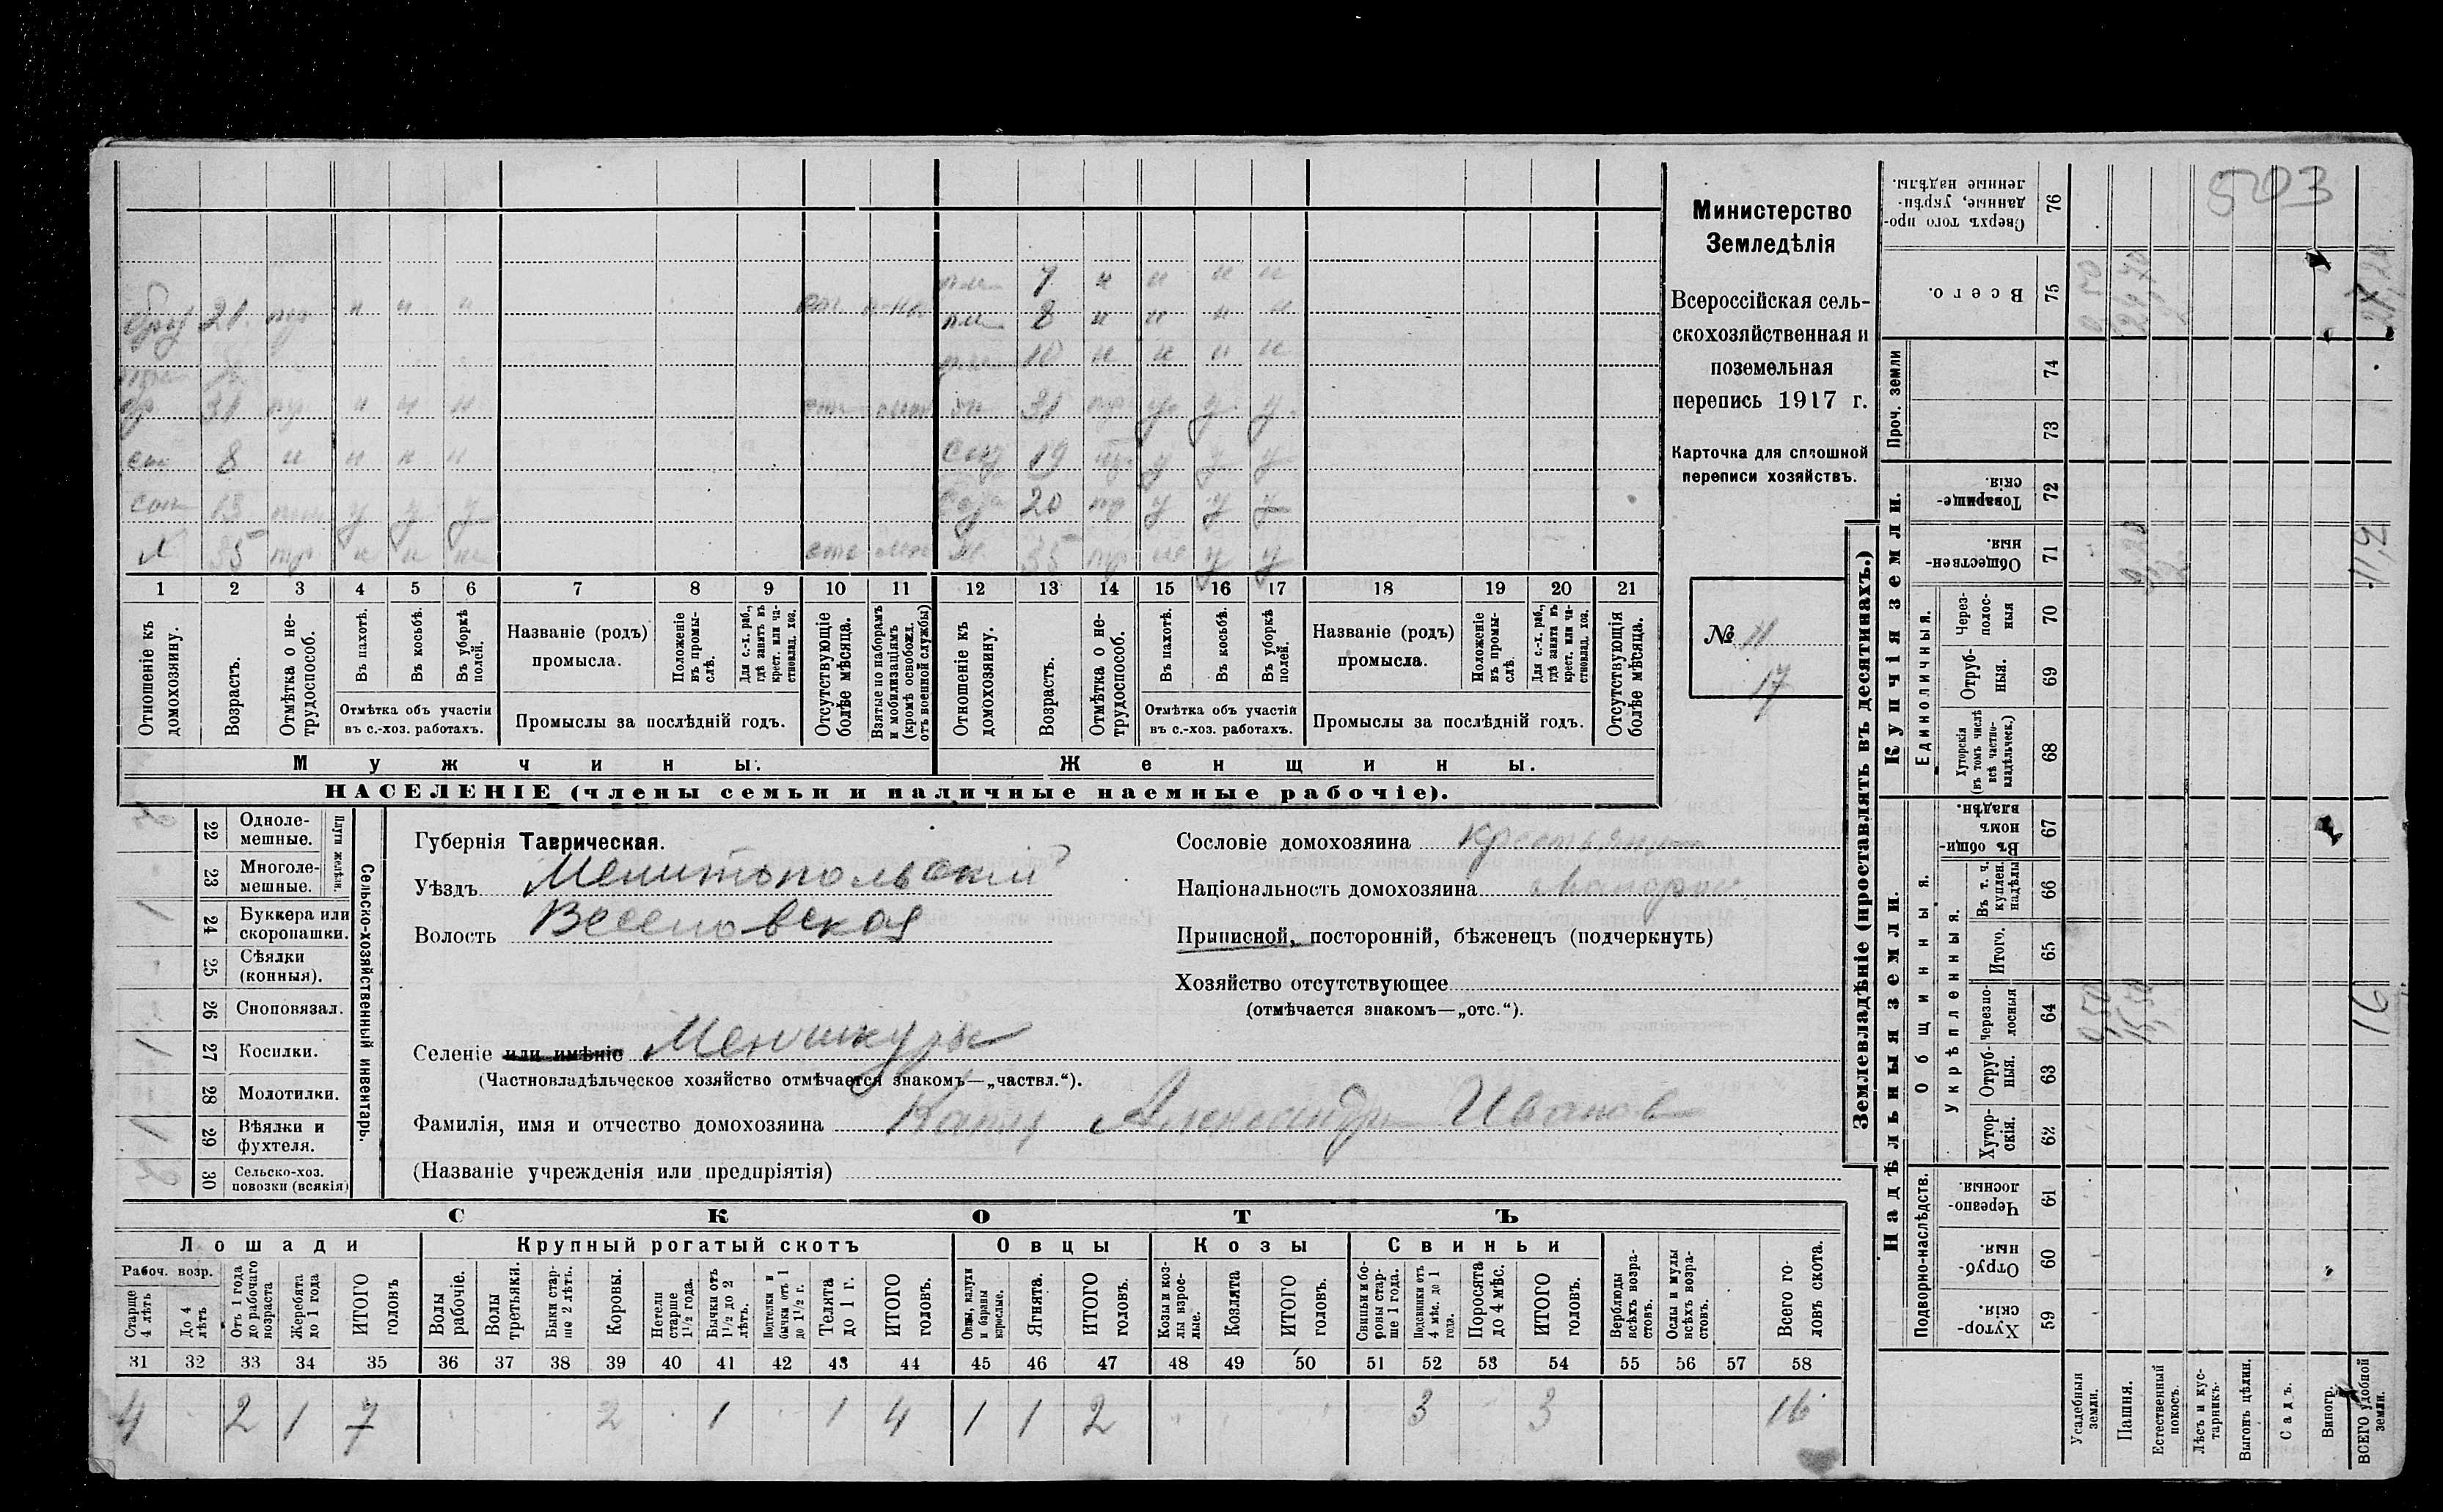 503
Министерство
Земледѣлія
Всероссійская сель-
скохозяйственная и
поземельная
перепись 1917 г.
Карточка для сплошной
переписи хозяйствъ.
№ 11
17
7 и и и и
21 и и и
8 и и и и
10 и и и и
31 и и и 31 у у у
8 и и и и 19 у у у
13 у у у 20 у у у
35 и и 35 у у
1 2 3 4 5 6 7 8 9 10 11 12 13 14 15 16 17 18 19 20 21
Отношеніе къ домохозяину.
Возрастъ.
Отмѣтка о не-трудоспособ.
Въ пахотѣ.
Въ косьбѣ.
Въ уборкѣ полей.
Отмѣтка объ участіи въ с.-хоз. работахъ.
Названіе (родъ) промысла.
Положеніе въ промы-слѣ.
Для с.-х. раб., гдѣ занятъ въ крест. или ча-стновлад. хоз.
Промыслы за послѣдній годъ.
Отсутствующіе болѣе мѣсяца.
Взятые по наборамъ и мобилизаціямъ (кромѣ освобожд. отъ военной службы)
Отношеніе къ домохозяину.
Возрастъ.
Отмѣтка о не-трудоспособ.
Въ пахотѣ.
Въ косьбѣ.
Въ уборкѣ полей.
Отмѣтка объ участіи въ с.-хоз. работахъ.
Названіе (родъ) промысла.
Положеніе въ промы-слѣ.
Для с.-х. раб., гдѣ занята въ крест. или ча-стновлад. хоз.
Промыслы за послѣдній годъ.
Отсутствующія болѣе мѣсяца.
Мужчины. Женщины.
НАСЕЛЕНІЕ (члены семьи и наличные наемные рабочіе).
Сельско-хозяйственный инвентарь.
Плуги желѣзн.
22 Одноле-мешные.
23 Многоле-мешные.
24 Буккера или скоропашки. 1
25 Сѣялки (конныя).
26 Сноповязал.
27 Косилки. 1
28 Молотилки.
29 Вѣялки и фухтеля. 1
30 Сельско-хоз. повозки (всякія) 2
Губернія Таврическая.
Уѣздъ Мелитопольскій
Волость Веселовская
Селеніе или имѣніе Менчикуры
(Частновладѣльческое хозяйство отмѣчается знакомъ—„частвл.“).
Фамилія, имя и отчество домохозяина Александръ Иванов
(Названіе учрежденія или предпріятія)
Сословіе домохозяина крестьянин
Національность домохозяина малорос
Приписной, посторонній, бѣженецъ (подчеркнуть)
Хозяйство отсутствующее
(отмѣчается знакомъ—„отс.“).
СКОТЪ
Лошади Крупный рогатый скотъ Овцы Козы Свиньи
Рабоч. возр.
Старше 4 лѣтъ
До 4 лѣтъ
Отъ 1 года до рабочаго возраста
Жеребята до 1 года
ИТОГО головъ
Волы рабочіе.
Волы третьяки.
Быки стар-ше 2 лѣтъ.
Коровы.
Нетели старше 1½ года.
Бычки отъ 1½ до 2 лѣтъ.
Подтелки и бычки отъ 1 до 1½ г.
Телята до 1 г.
ИТОГО головъ.
Овцы, валухи и бараны взрослые.
Ягнята.
ИТОГО головъ.
Козы и коз-лы взрос-лые.
Козлята
ИТОГО головъ.
Свиньи и бо-ровы стар-ше 1 года.
Подсвинки отъ 4 мѣс. до 1 года.
Поросята до 4 мѣс.
ИТОГО головъ.
Верблюды всѣхъ возра-стовъ.
Ослы и мулы всѣхъ возра-стовъ.
Всего го-ловъ скота.
31 32 33 34 35 36 37 38 39 40 41 42 43 44 45 46 47 48 49 50 51 52 53 54 55 56 57 58
4 2 1 7 2 1 1 4 1 1 2 3 3 16
Землевладѣніе (проставлять въ десятинахъ.)
Надѣльныя земли.
Купчія земли.
Проч. земли
Подворно-наслѣдств.
Общинныя.
Укрѣпленныя.
Единоличныя.
Сверхъ того про-данные, укрѣп-ленные надѣлы. 76
Всего. 75
74
73
Товарище-скія. 72
Обществен-ныя. 71
Через-полос-ныя 70
Отруб-ныя. 69
Хуторскія (въ томъ числѣ всѣ частно-владѣльческ.) 68
Въ общин-номъ владѣн. 67
Въ т. ч. куплен. надѣлы 66
Итого. 65
Черезпо-лосныя 64
Отруб-ныя. 63
Хутор-скія. 62
Черезпо-лосныя. 61
Отруб-ныя. 60
Хутор-скія. 59
Усадебныя земли.
Пашня.
Естественный покосъ.
Лѣсъ и кус-тарникъ.
Выгонъ цѣлин.
Садъ.
Виногр.
ВСЕГО удобной земли.
16
11,2